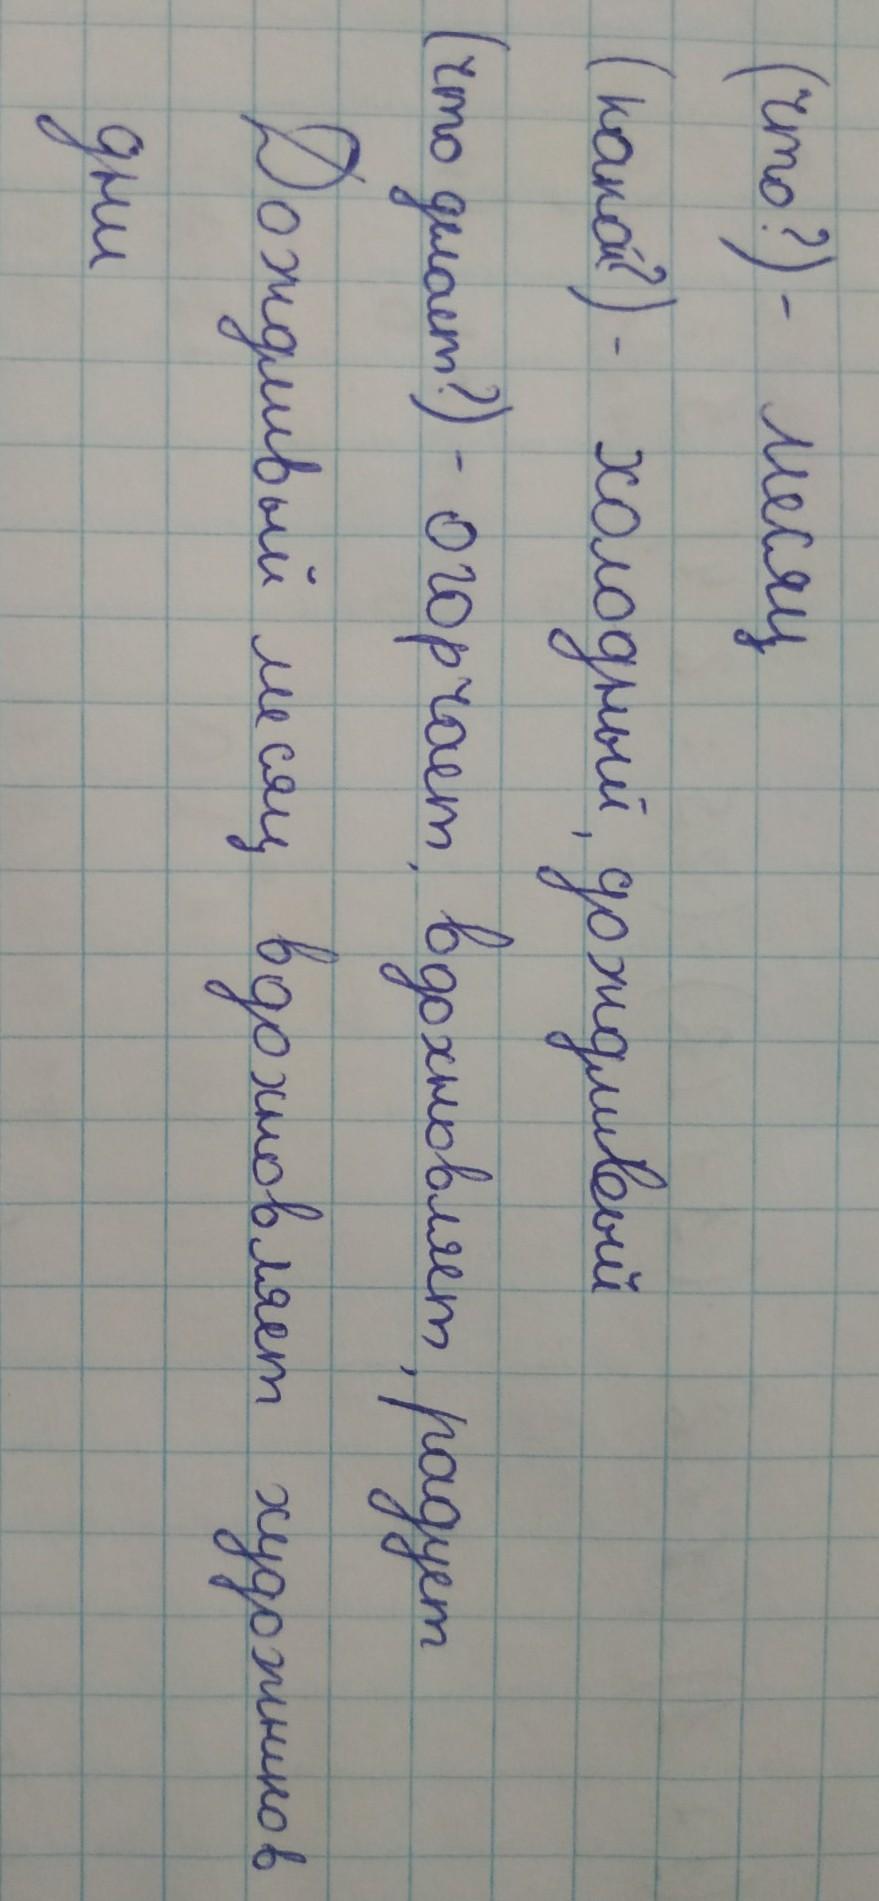 (что?) - месяц
(какой?) - холодный, дождливый
(что делает?) - огорчает, вдохновляет, радует
Дождливый месяц вдохновляет художников
дни